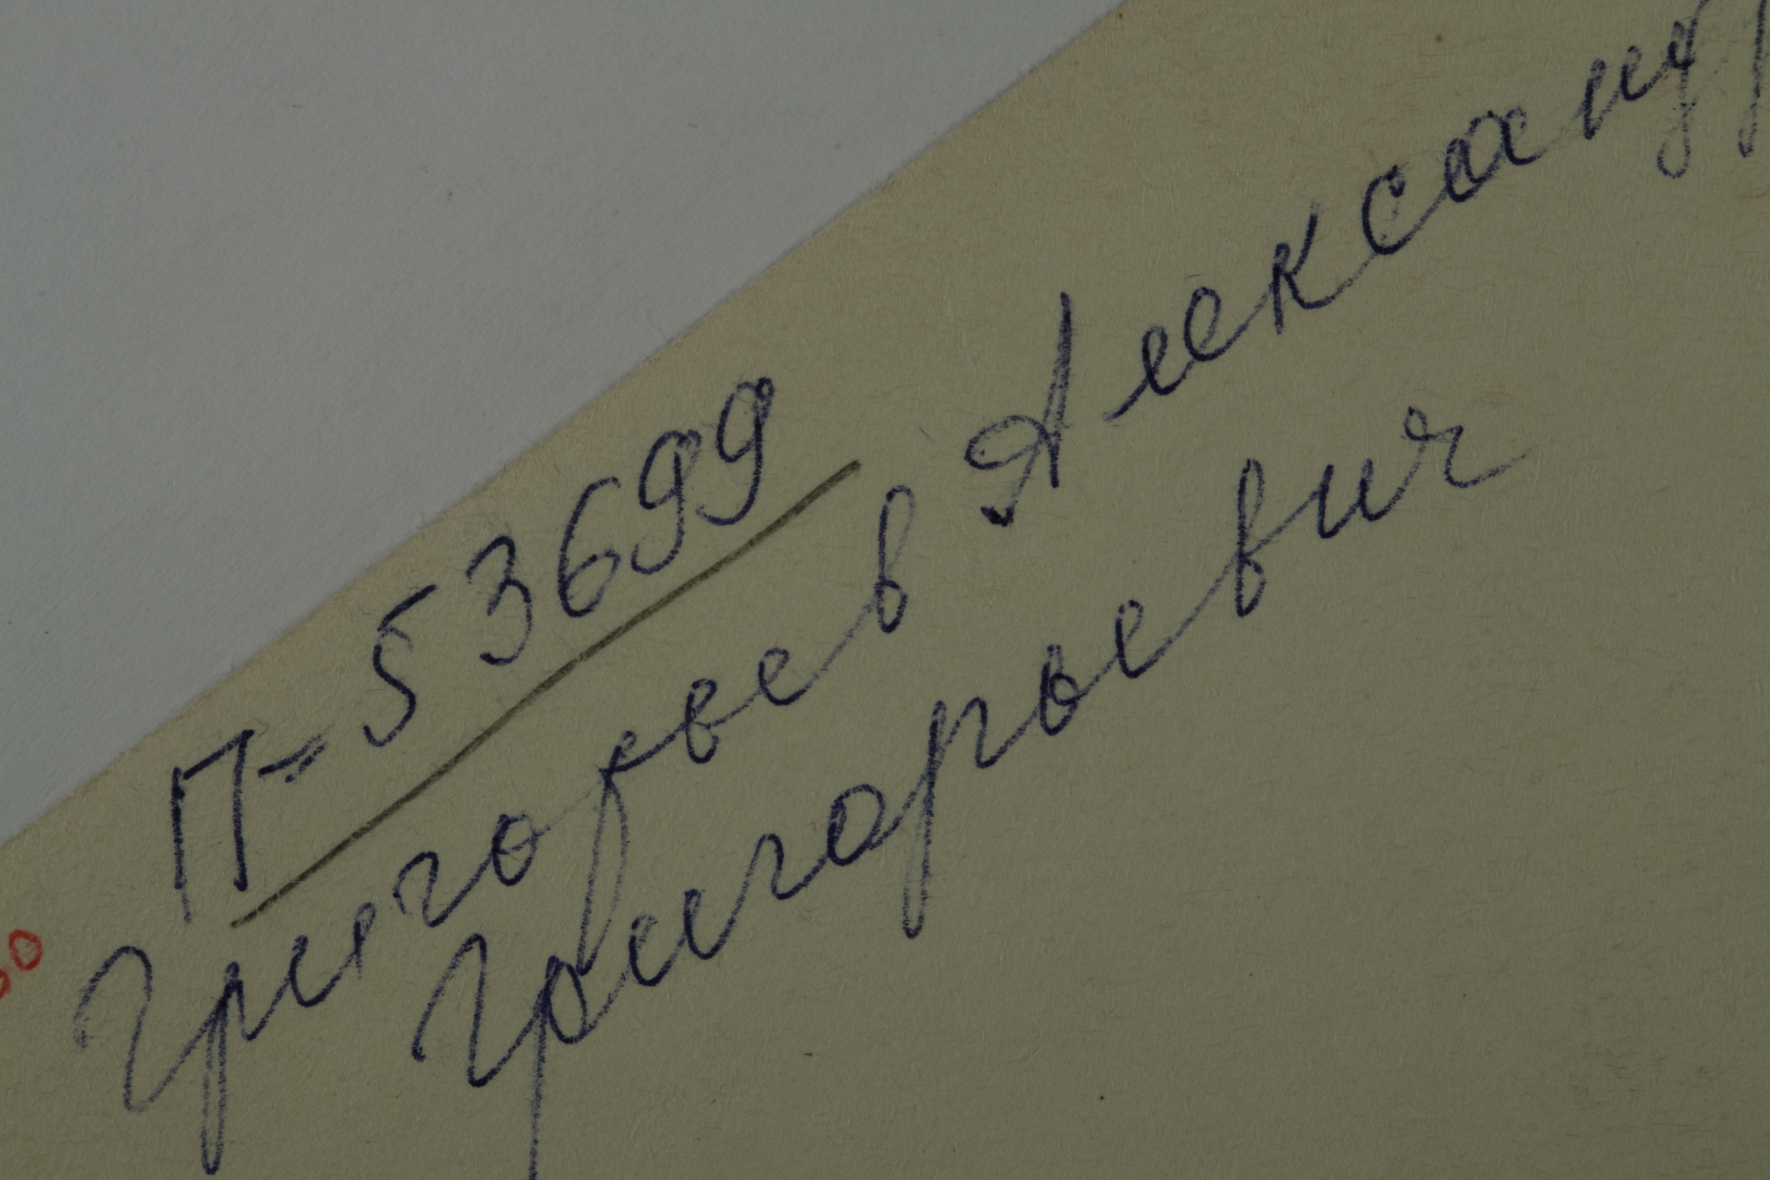 П-53699
Григорьев Александр
Григорьевич